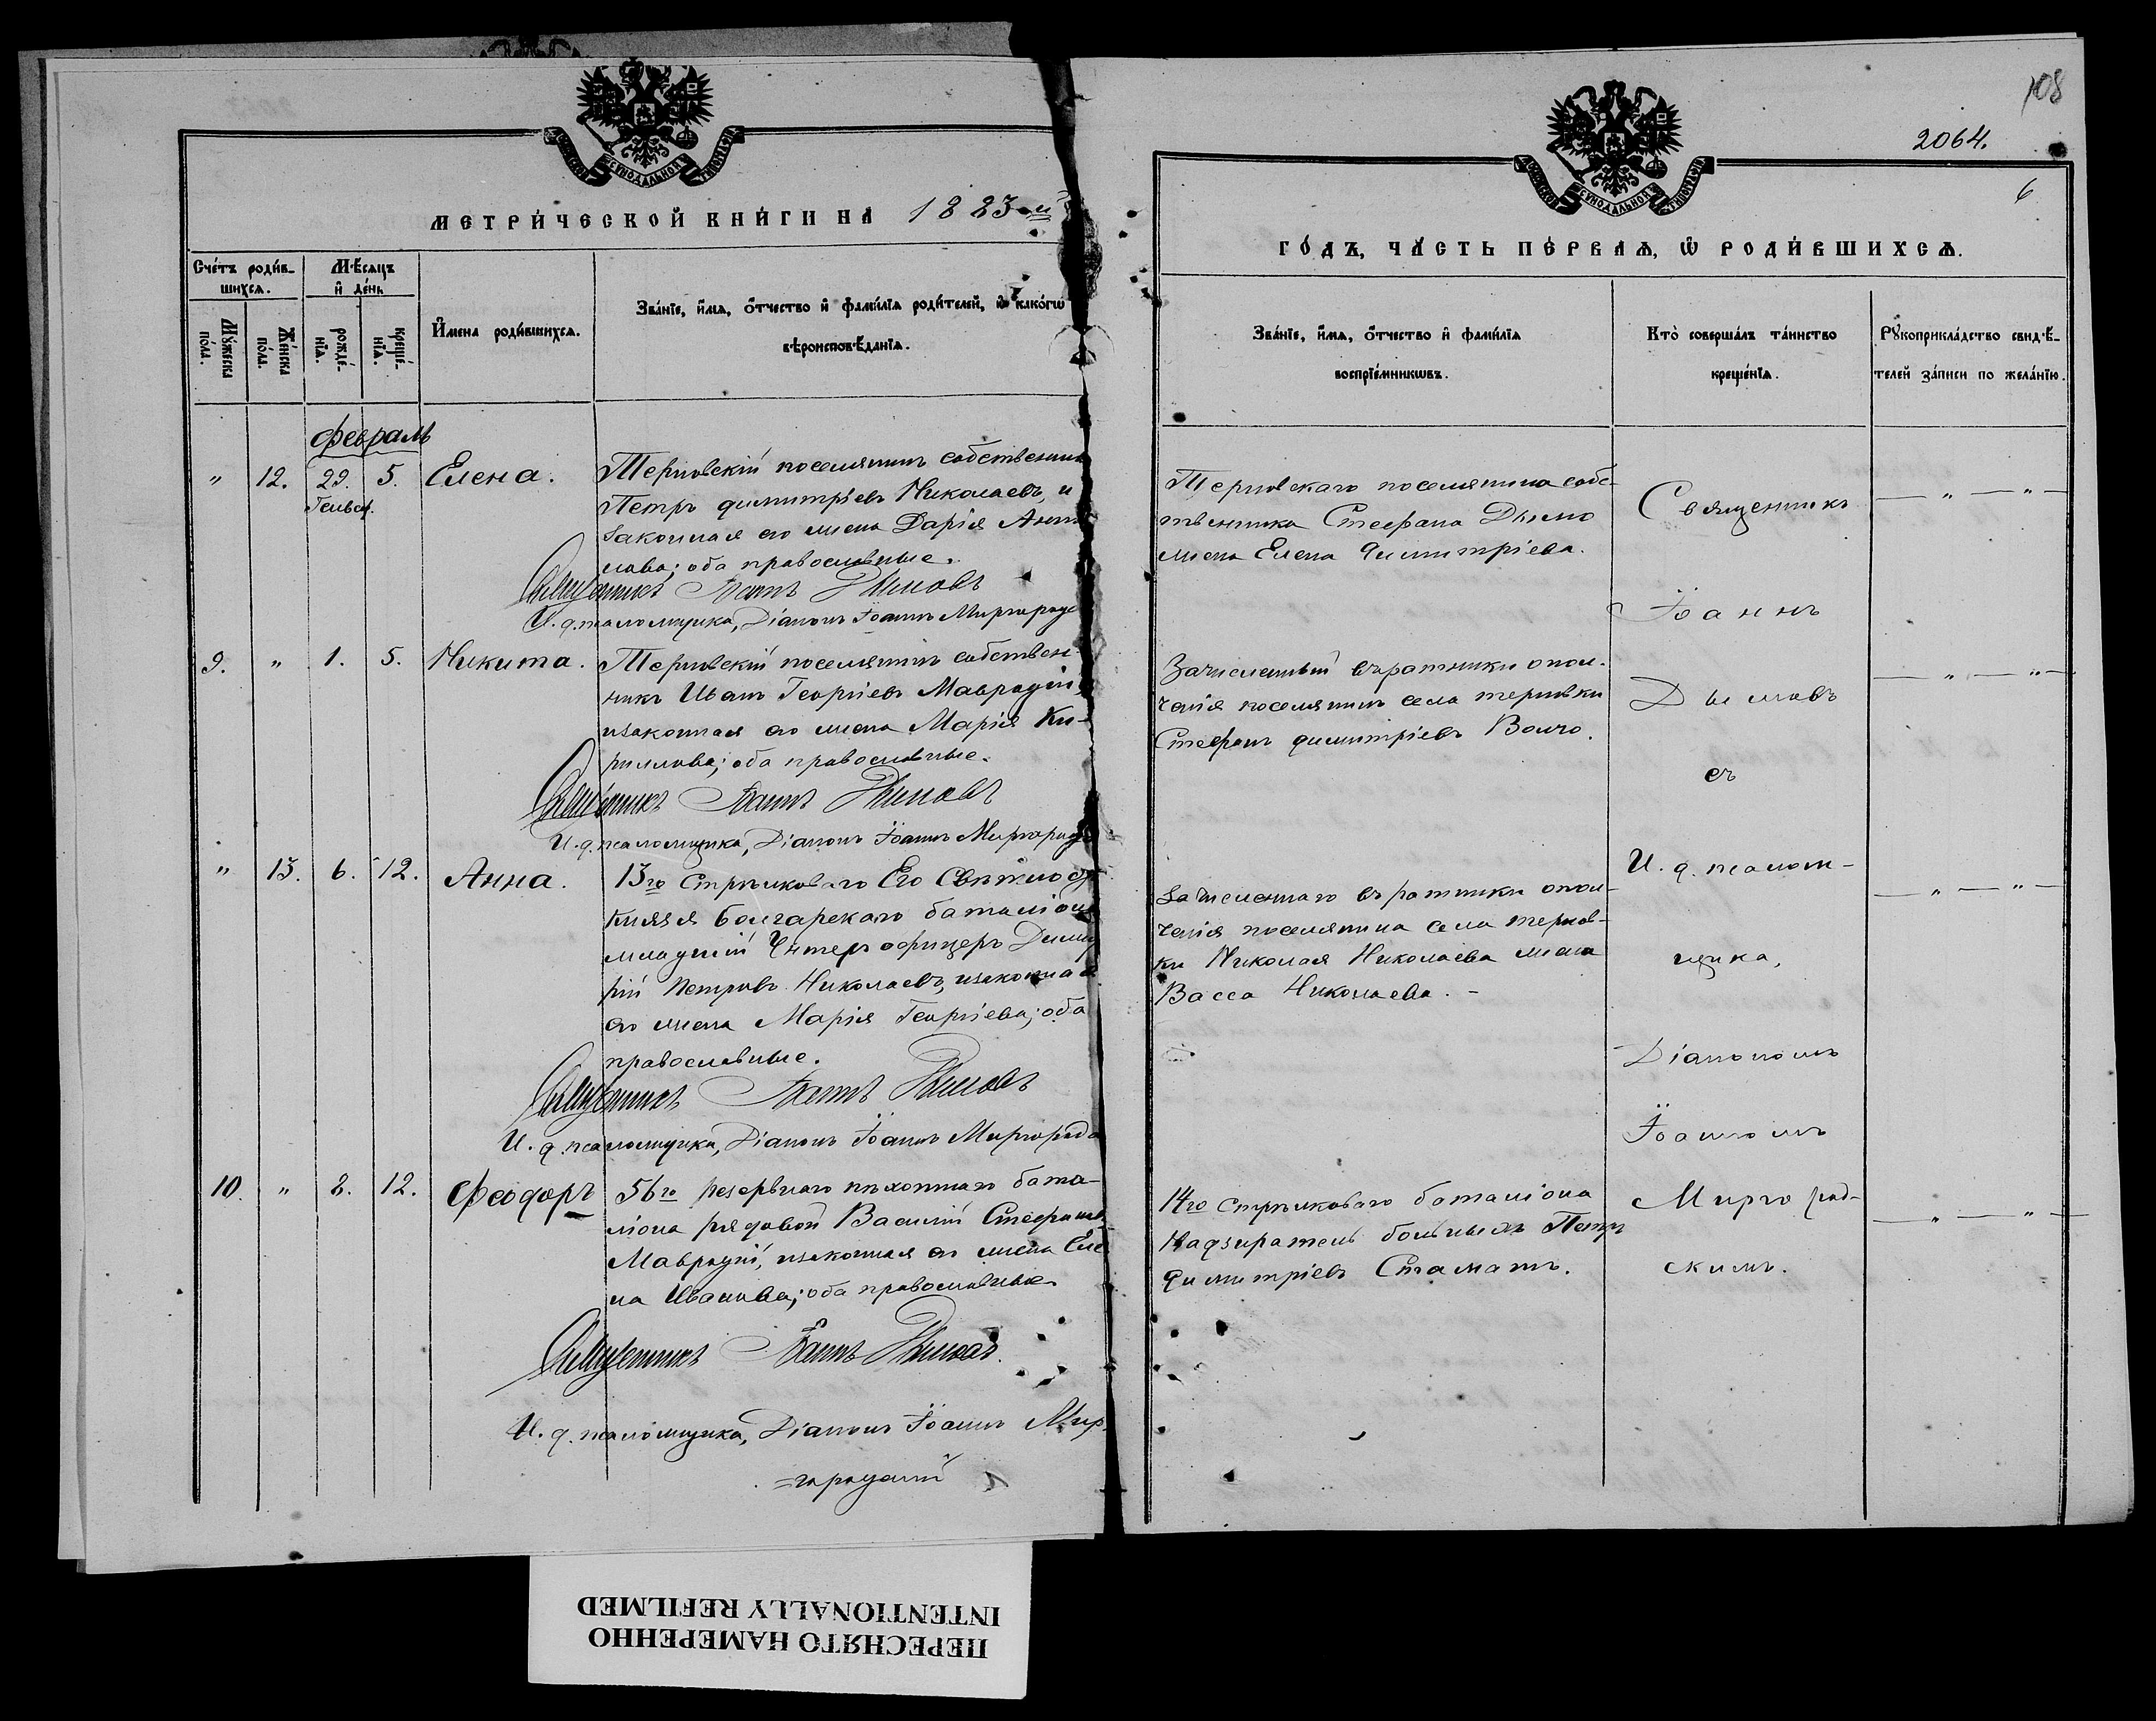 108
2064.
6
МЕТРИ́ЧЕСКОЙ КНИ́ГИ НА 1883-й
ГО́ДЪ, ЧА́СТЬ ПЕ́РВАѦ, Ѡ҆ РОДИ́ВШИХСѦ.
Сче́тъ роди́в-
шихсѧ.
Мѣ́сѧцъ
и҆ де́нь
Му́жеска
по́ла.
Же́нска
по́ла.
рожде́-
нїѧ.
креще́-
нїѧ.
И҆мена роди́вшихсѧ.
Зва́нїе, и҆́мѧ, ѻ҆́тчество и҆ фами́лїѧ роди́телей, и҆ како́гѡ
вѣроисповѣ́данїѧ.
Зва́нїе, и҆́мѧ, ѻ҆́тчество и҆ фами́лїѧ
воспрїе́мникѡвъ.
Кто̀ соверша́лъ та́инство
креще́нїѧ.
Рꙋкоприкла́дство свидѣ́-
телей за́писи по жела́нїю.
Февраль
" 12. 29. 5. Елена.
Генвар.
Терновскій поселянинъ собственник
Петръ Димитріевъ Николаевъ, и
законная его жена Дарія Анто
нова; оба православные.
Священникъ Іоаннъ Дымовъ
И. д. псаломщика, Діаконъ Іоаннъ Миргород
Терновскаго поселянина собс-
твенника Стефана Дымо
жена Елена Димитріева.
9. " 1. 5. Никита.
Терновскій поселянинъ собствен-
никъ Иванъ Георгіевъ Мавродій,
и законная его жена Марія Ки-
риллова; оба православные.
Священникъ Іоаннъ Дымовъ
И. д. псаломщика, Діаконъ Іоаннъ Миргород
Зачисленный въ ратники опол-
ченія поселянинъ села Терновки
Стефанъ Димитріевъ Волчо.
" 13. 6. 12. Анна.
13го Стрѣлковаго Его Свѣтлос
Князя Болгарскаго баталіон
младшій Унтеръ офицеръ Димит
рій Петровъ Николаевъ, и законная
его жена Марія Георгіева; оба
православные.
Священникъ Іоаннъ Дымовъ
И. д. псаломщика, Діаконъ Іоаннъ Миргород
Зачисленнаго въ ратники опол-
ченія поселянина села Тернов-
ки Николая Николаева жена
Васса Николаева. -
10. " 8. 12. Феодоръ
56го резервнаго пѣхотнаго бата-
ліона рядовой Василій Стефановъ
Мавродій, и законная его жена Еле
на Иванова; оба православные
Священникъ Іоаннъ Дымовъ.
И. д. псаломщика, Діаконъ Іоаннъ Мир-
=городскій
14го стрѣлковаго баталіона
Надзиратель больныхъ Петръ
Димитріевъ Стаматъ.
Священникъ
Іоаннъ
Дымовъ
съ
И. д. псалом-
щика,
Діакономъ
Іоанномъ
Миргород-
скимъ.
— " — " —
— " — " —
— " — " —
— " — " —
ПЕРЕСНЯТО НАМЕРЕННО
INTENTIONALLY REFILMED